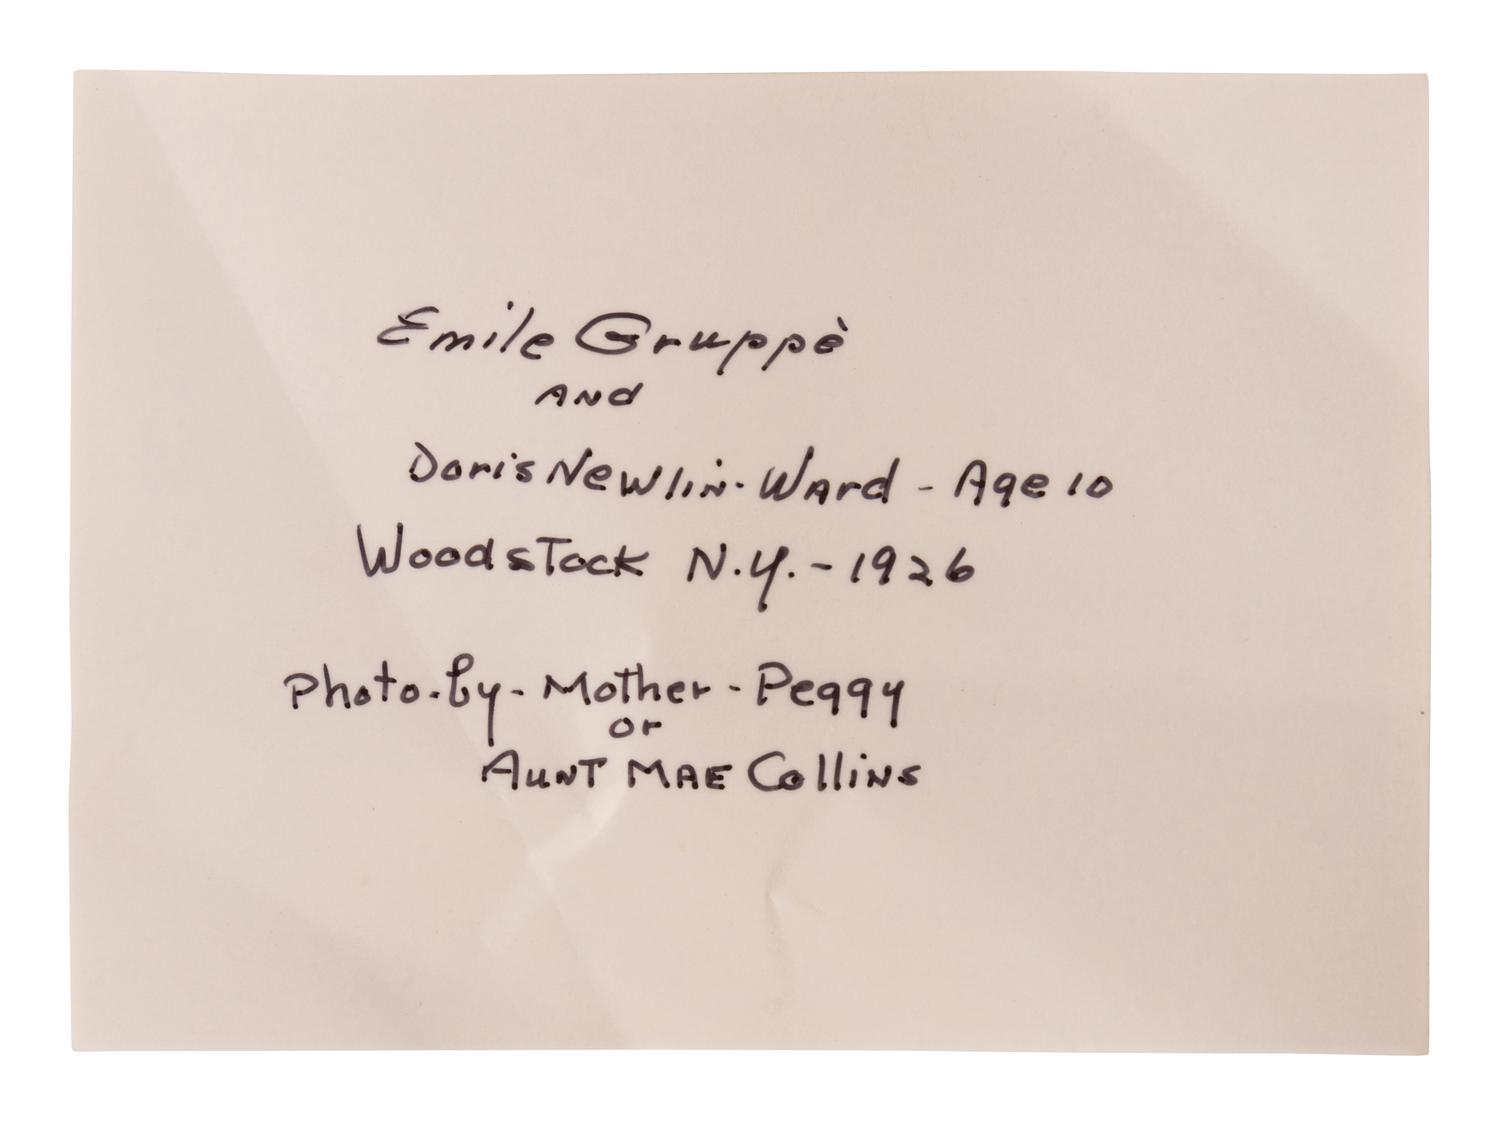 Emile Gruppè
AND
Doris Newlin-Ward - Age 10
Woodstock N.Y. - 1926
Photo-by-Mother-Peggy
or
AUNT MAE Collins